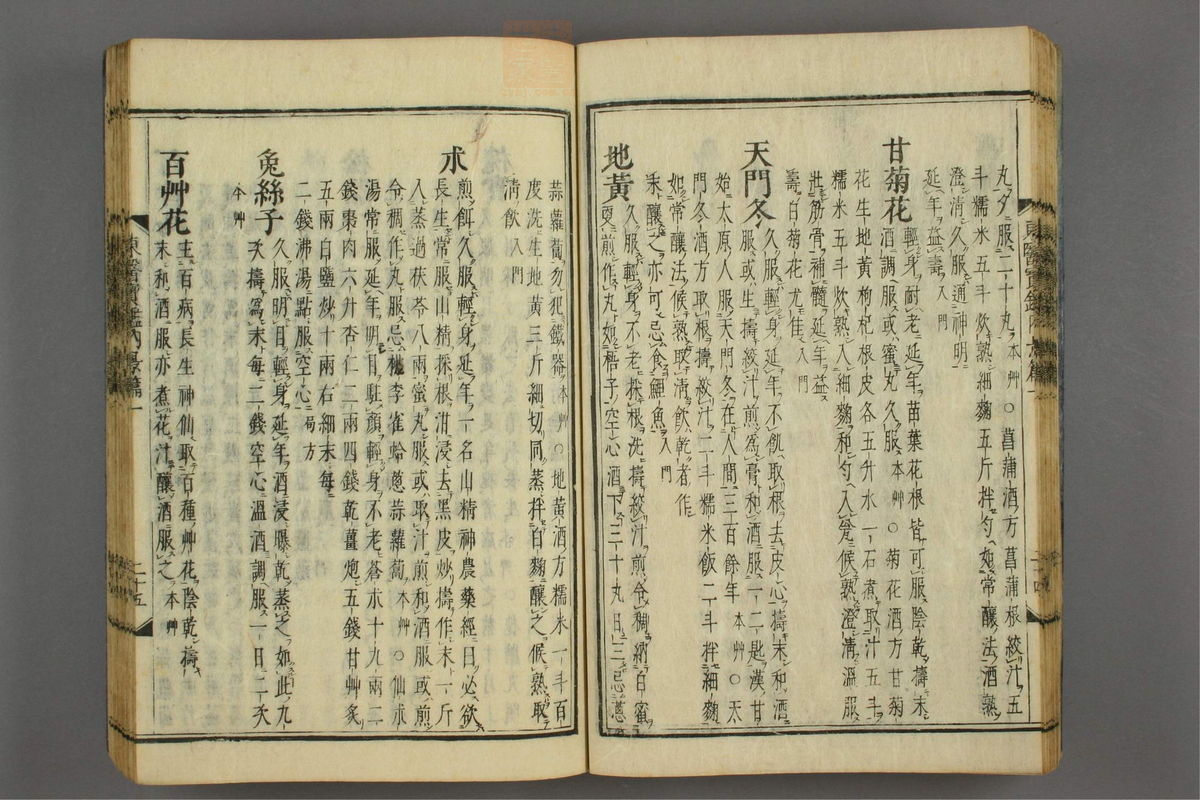 丸夕服二十丸本艸○菖蒲酒方菖蒲根絞汁五
斗糯米五斗炊熟細麴五斤拌勻如常釀法酒熟
澄清久服通神明
延年益壽入門
甘菊花
輕身耐老延年苗葉花根皆可服陰乾擣末
酒調服或蜜丸久服本艸○菊花酒方甘菊
花生地黃枸杞根皮各五升水一石煮取汁五斗
糯米五斗炊熟入細麴和勻入瓮候熟澄清溫服
壯筋骨補髓延年益
壽白菊花尤佳入門
天門冬
久服輕身延年不飢取根去皮心擣末和酒
服或生擣絞汁煎爲膏和酒服一二匙漢甘
始太原人服天門冬在人間三百餘年本艸○天
門冬酒方取根擣絞汁二斗糯米飯二斗拌細麴
如常釀法候熟取清飮乾者作
末釀之亦可忌食鯉魚入門
地黃
久服輕身不老採根洗擣絞汁煎令稠納白蜜
更煎作丸如梧子空心酒下三十丸日三忌葱
蒜蘿蔔勿犯鐵器本艸○地黃酒方糯米一斗百
度洗生地黃三斤細切同蒸拌白麴釀之候熟取
清飮入門
朮
煎餌久服輕身延年一名山精神農藥經曰必欲
長生常服山精採根泔浸去黑皮炒擣作末一斤
入蒸過茯苓八兩蜜丸服或取汁煎和酒服或煎
令稠作丸服忌桃李雀蛤葱蒜蘿蔔本艸○仙朮
湯常服延年明目駐顏輕身不老蒼朮十九兩二
錢棗肉六升杏仁二兩四錢乾薑炮五錢甘艸炙
五兩白鹽炒十兩右細末每
二錢沸湯點服空心局方
兔絲子
久服明目輕身延年酒浸曝乾蒸之如此九
次擣爲末每二錢空心溫酒調服一日二次
本艸
百艸花
主百病長生神仙取百種艸花陰乾擣
末和酒服亦煮花汁釀酒服之本艸
東醫寶鑑內景篇一
二十五